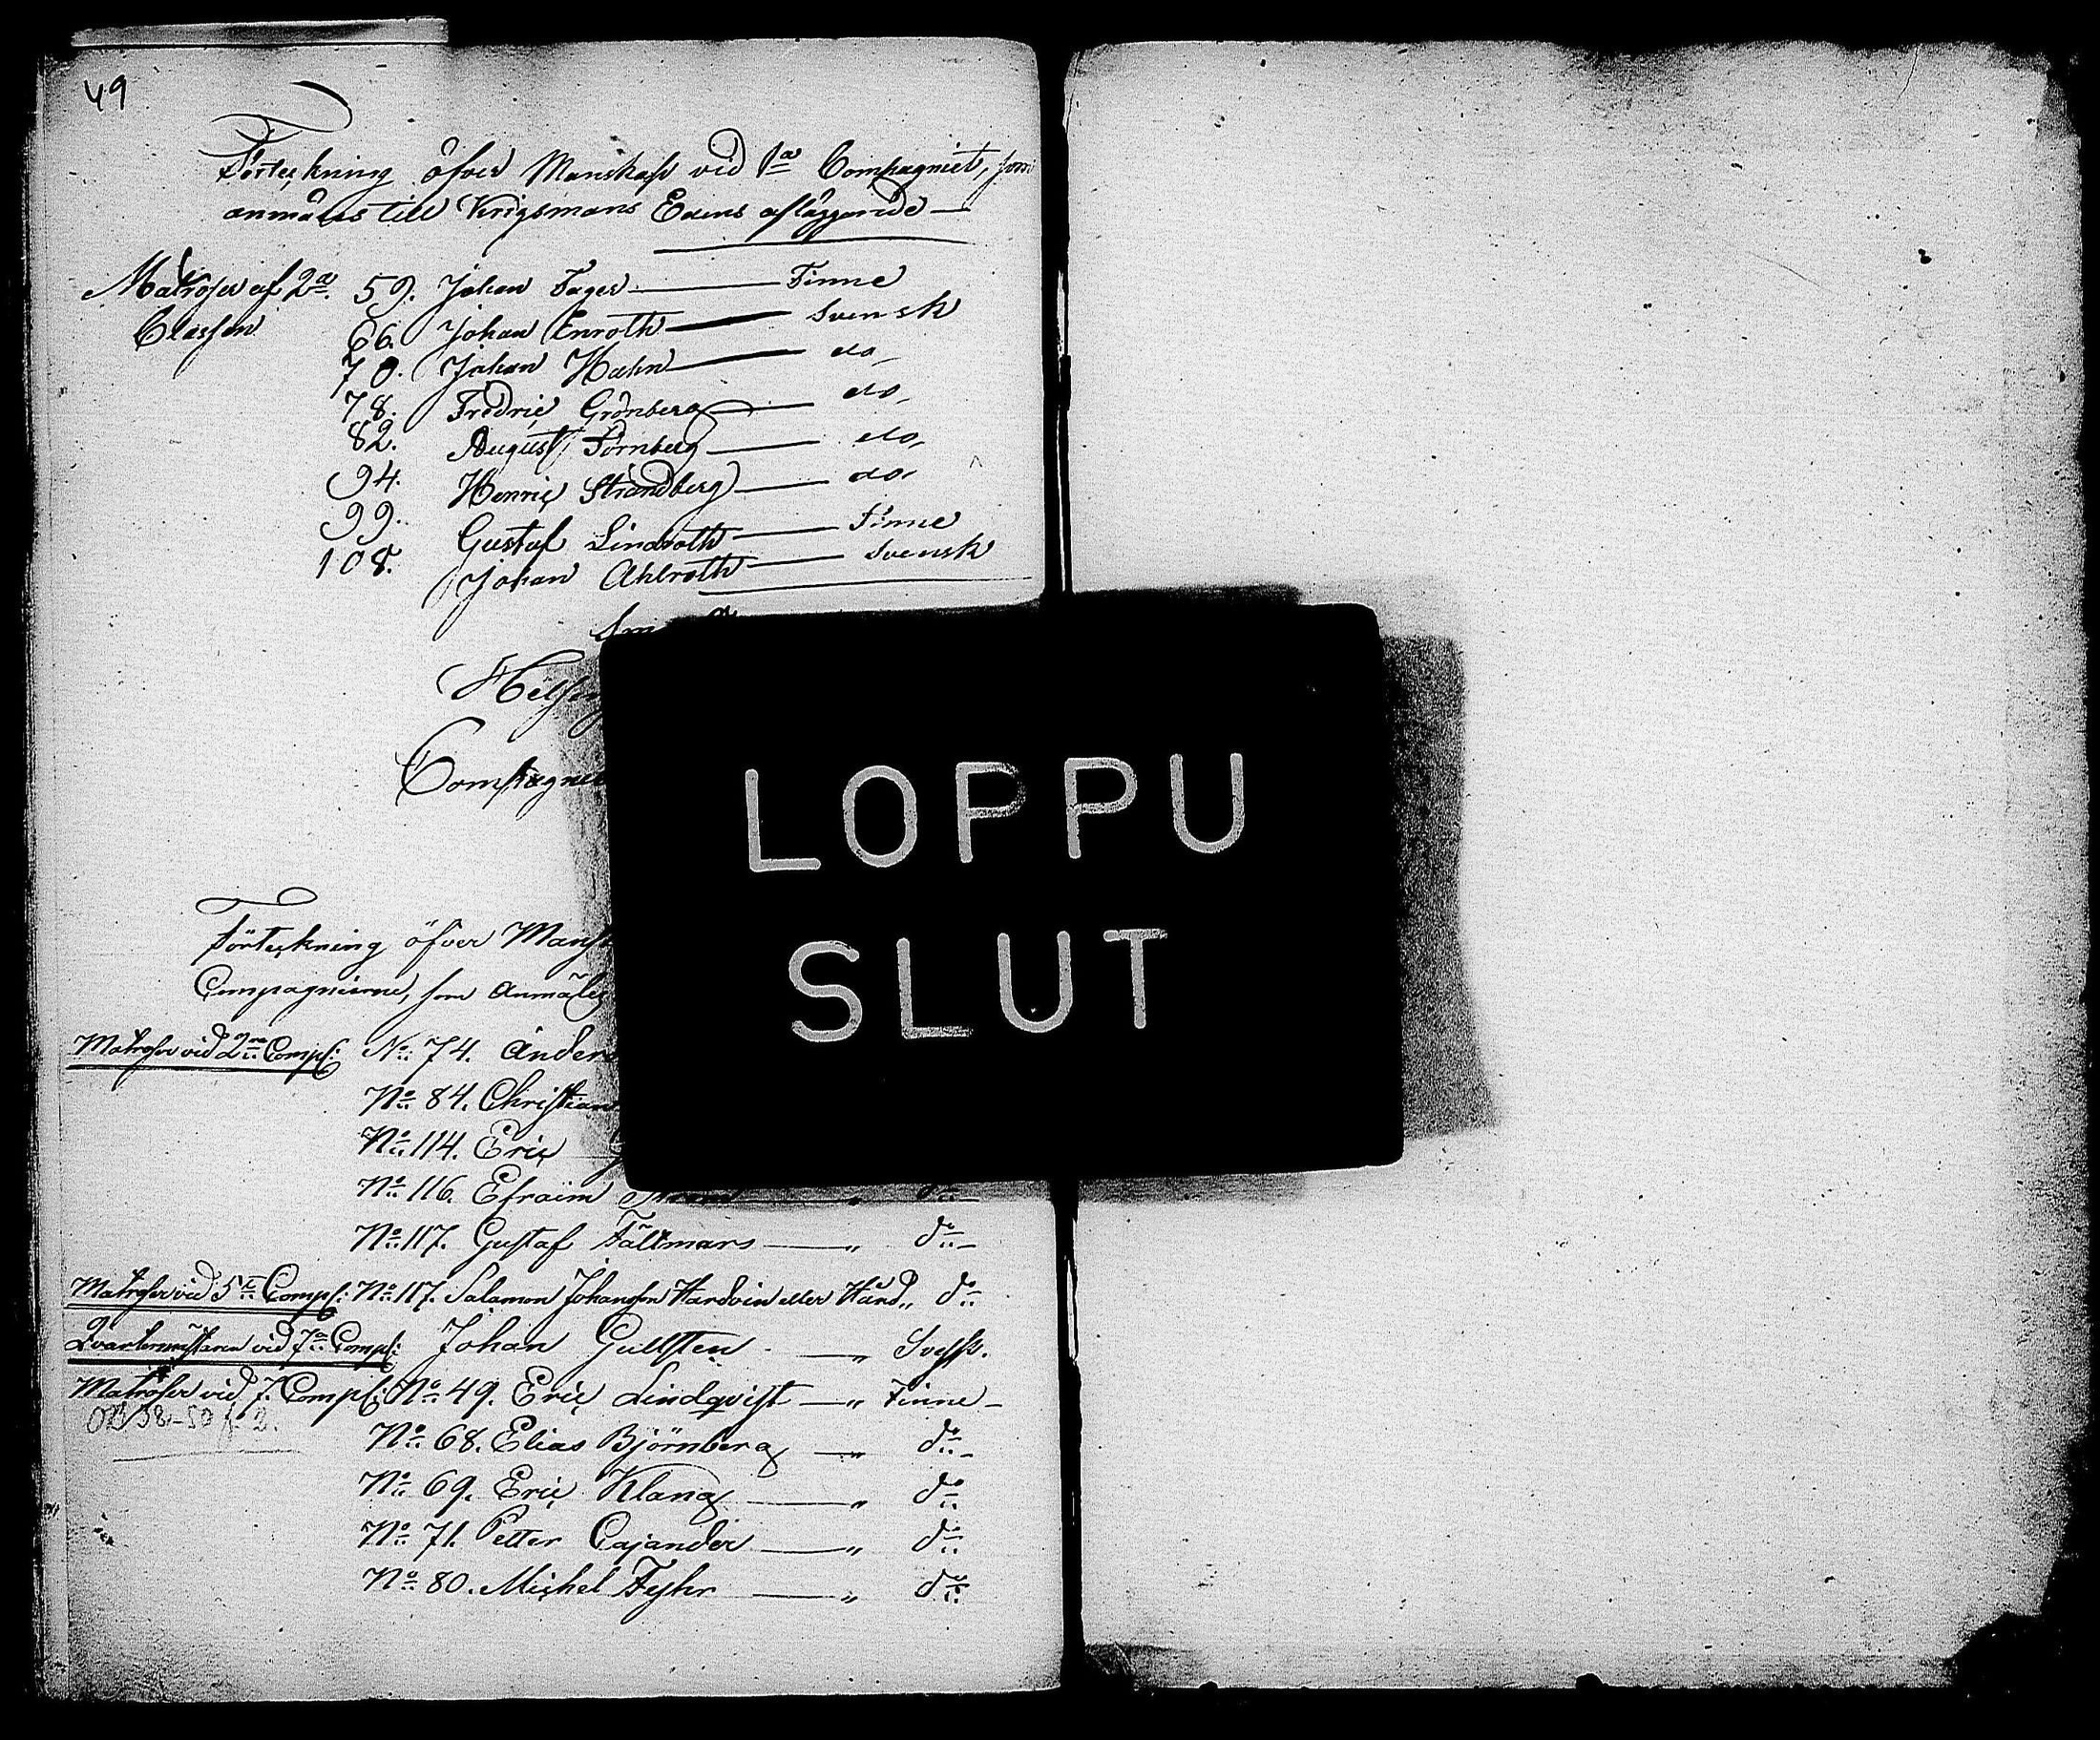 49
Förteckning öfver Manskap vid 1a Compagniet, som
anmäles till Krigsmans Edens afläggande
Matroser af 2a 59. Johan Fager Finne
Classen 66. Johan Enroth Svensk
70. Johan Hahn do
78. Fredric Grönberg do
82. August Törnberg do
94. Henric Strandberg do
99. Gustaf Lindroth Finne
108. Johan Ahlroth Svensk
Helsing
Compagnie
LOPPU
SLUT
Förteckning öfver Mansk
Compagnierne, som anmäles
Matroser vid 2ra Comp: No 74. Anders
No 84. Christian
No 114. Eric
No 116. Efraim do
No 117. Gustaf Fältmars do
Matroser vid 5te Comp: No 117. Salamon Johansson Hardvin eller Hård do
Qvartermästaren vid 7a Comp: Johan Gullsten
Matroser vid 7. Comp: No 49. Eric Lindqvist Finne
No 68. Elias Björnberg do
No 69. Eric Klang do
No 71. Petter Cajander do
No 80. Michel Fyhr do